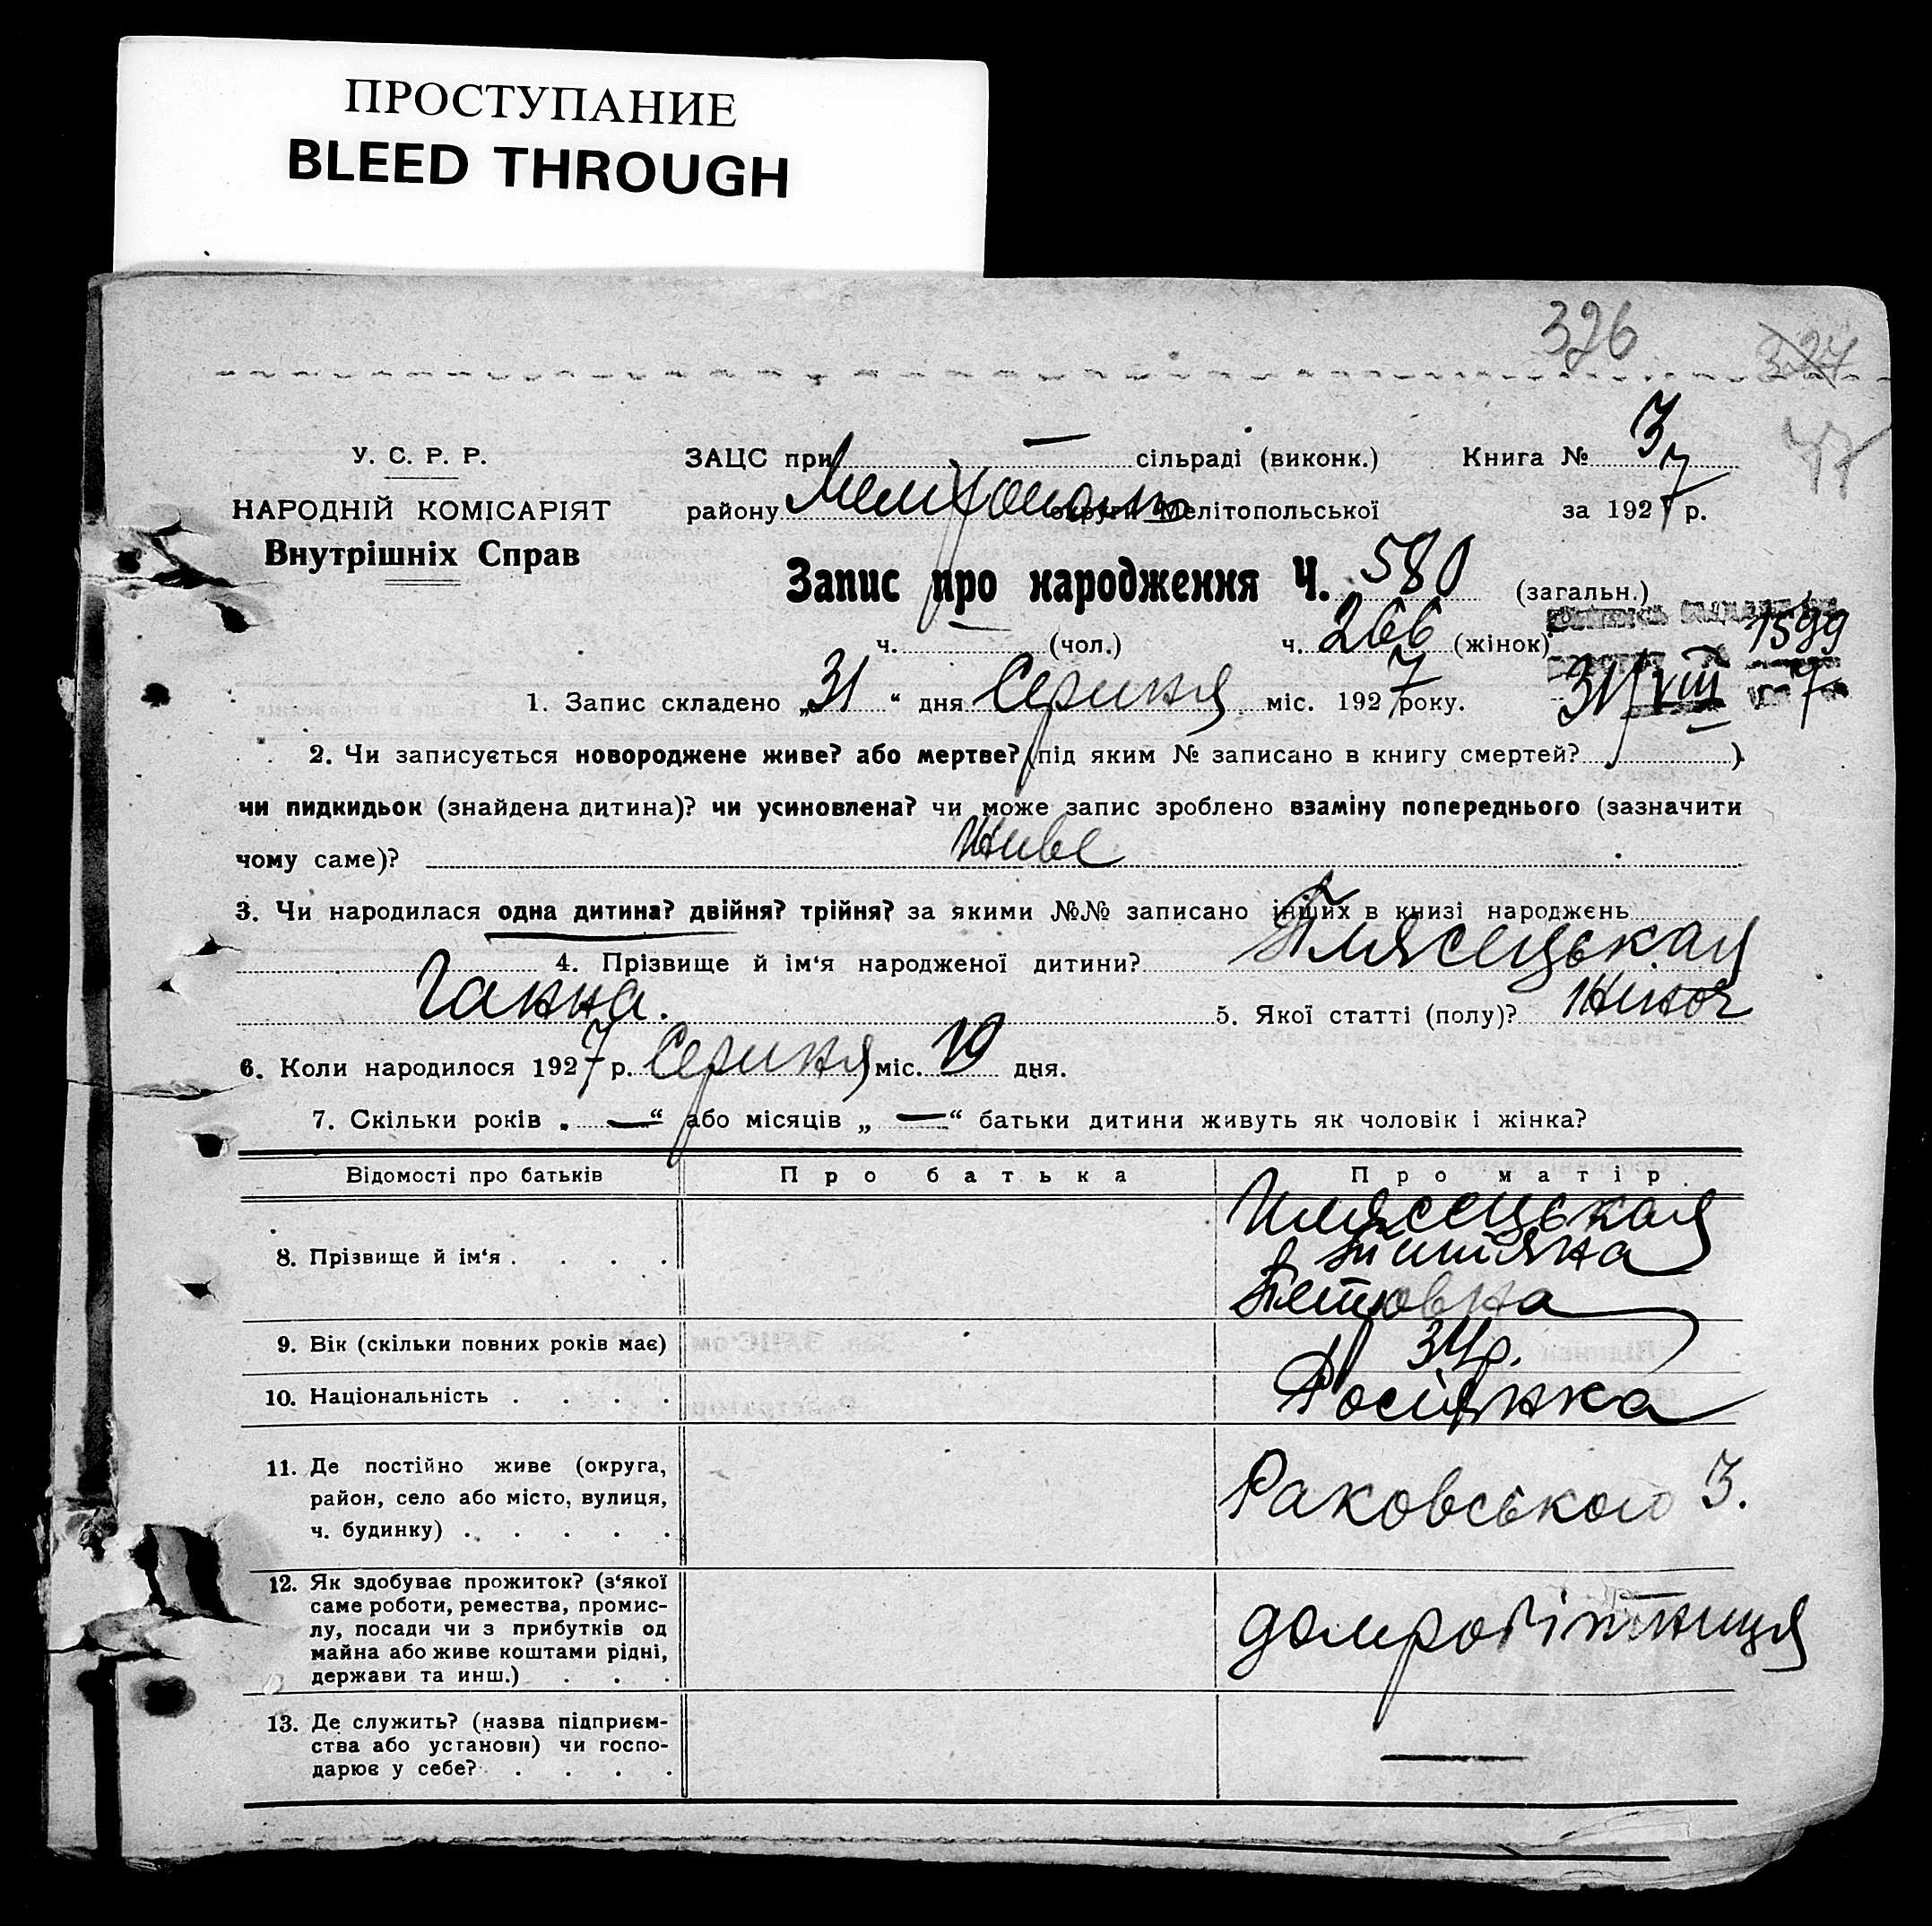 ПРОСТУПАНИЕ
BLEED THROUGH
326 327
47
У. С. Р. Р.
НАРОДНІЙ КОМІСАРІЯТ
Внутрішніх Справ
ЗАЦС при — сільраді (виконк.) Книга № 3
району Мелітополь округи Мелітопольської за 1927 р.
Запис про народження Ч. 580 (загальн.)
ч. — (чол.) ч. 266 (жінок) 1599
1. Запис складено „31“ дня Серпня міс. 1927 року. 31/VIII 7
2. Чи записується новороджене живе? або мертве? (під яким № записано в книгу смертей? )
чи пидкидьок (знайдена дитина)? чи усиновлена? чи може запис зроблено взаміну попереднього (зазначити
чому саме)? Живе
3. Чи народилася одна дитина? двійня? трійня? за якими №№ записано інших в книзі народжень
4. Прізвище й ім‘я народженої дитини? Плясецькая
Ганна. 5. Якої статті (полу)? Жіноч
6. Коли народилося 1927 р. Серпня міс. 19 дня.
7. Скільки років „ — “ або місяців „ — “ батьки дитини живуть як чоловік і жінка?
Відомості про батьків Про батька Про матір
8. Прізвище й ім‘я . . . . Плясецькая
Петровна
9. Вік (скільки повних років має) 34р.
10. Національність . . . . Росіянка
11. Де постійно живе (округа,
район, село або місто, вулиця,
ч. будинку) . . . . . Раковського 3.
12. Як здобуває прожиток? (з‘якої
саме роботи, ремества, промис-
лу, посади чи з прибутків од
майна або живе коштами рідні,
держави та инш.) . . . домробітниця
13. Де служить? (назва підприєм-
ства або установи) чи госпо-
дарює у себе? . . . . —